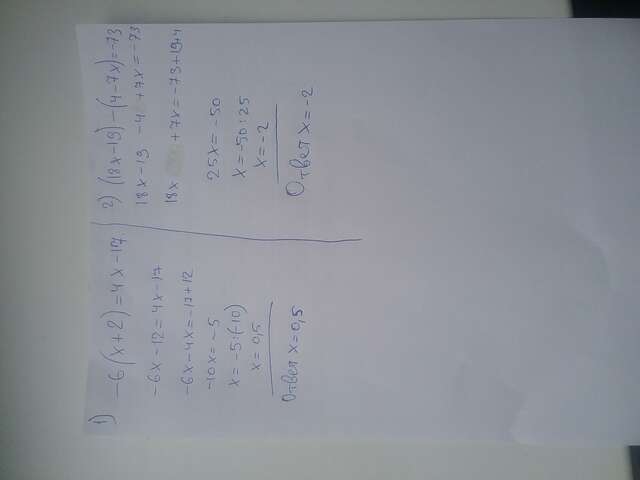 1) -6(x+2)=4x-17
-6x-12=4x-17
-6x-4x=-17+12
-10x=-5
x=-5:(-10)
x=0,5
Ответ x=0,5
2) (18x-19)-(4-7x)=-73
18x-19-4+7x=-73
18x +7x=-73+19+4
25x=-50
x=-50:25
x=-2
Ответ x=-2